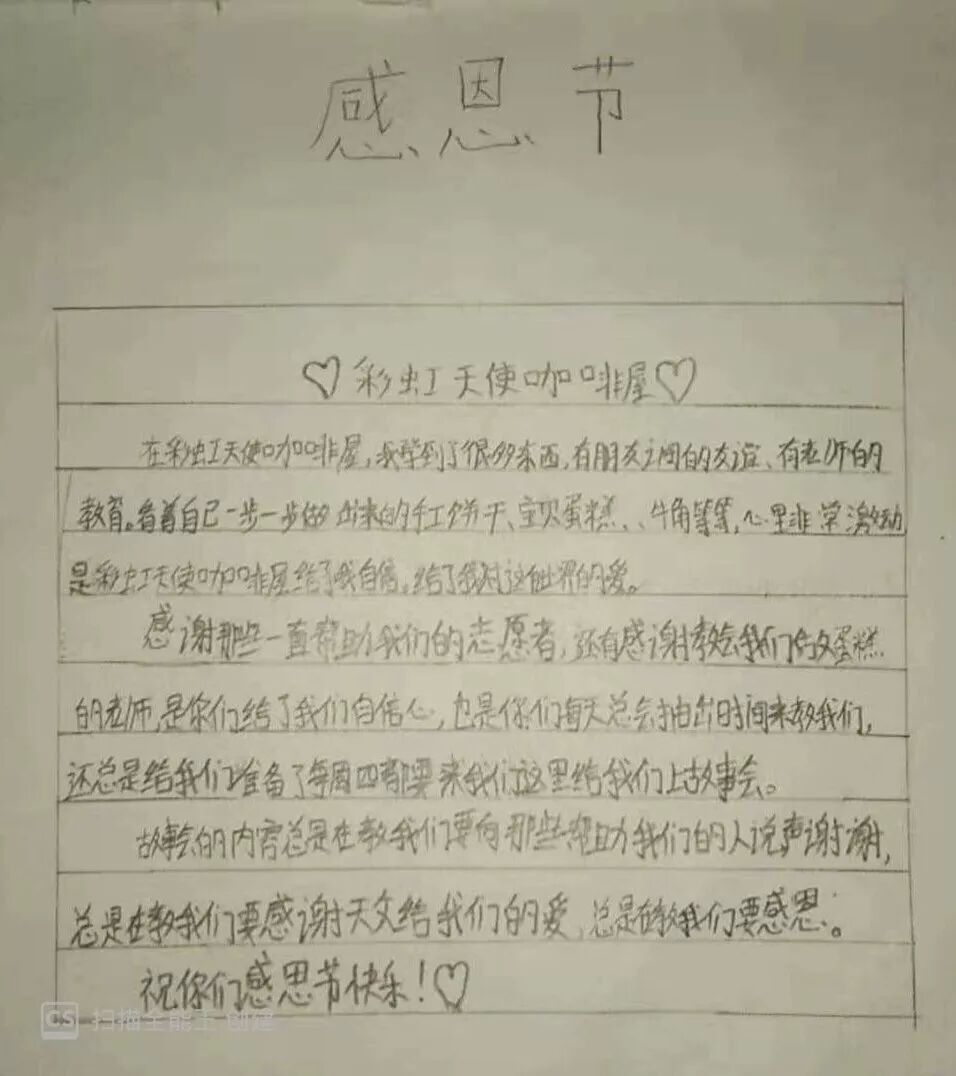 感恩节
♡彩虹天使咖啡屋♡
在彩虹天使咖啡屋,我学到了很多东西,有朋友之间的友谊、有老师的
教育。看着自己一步一步做出来的手工饼干、宝贝蛋糕、、牛角等等,心里非常激动,
是彩虹天使咖啡屋给了我自信,给了我对这个世界的爱。
感谢那些一直帮助我们的志愿者,还有感谢教会我们做蛋糕
的老师,是你们给了我们自信心,也是你们每天总会抽出时间来教我们,
还总是给我们准备了每周四都要来我们这里给我们上故事会。
故事会的内容总是在教我们要向那些帮助我们的人说声谢谢,
总是在教我们要感谢天父给我们的爱,总是在教我们要感恩。
祝你们感恩节快乐!♡
CS 扫描全能王 创建